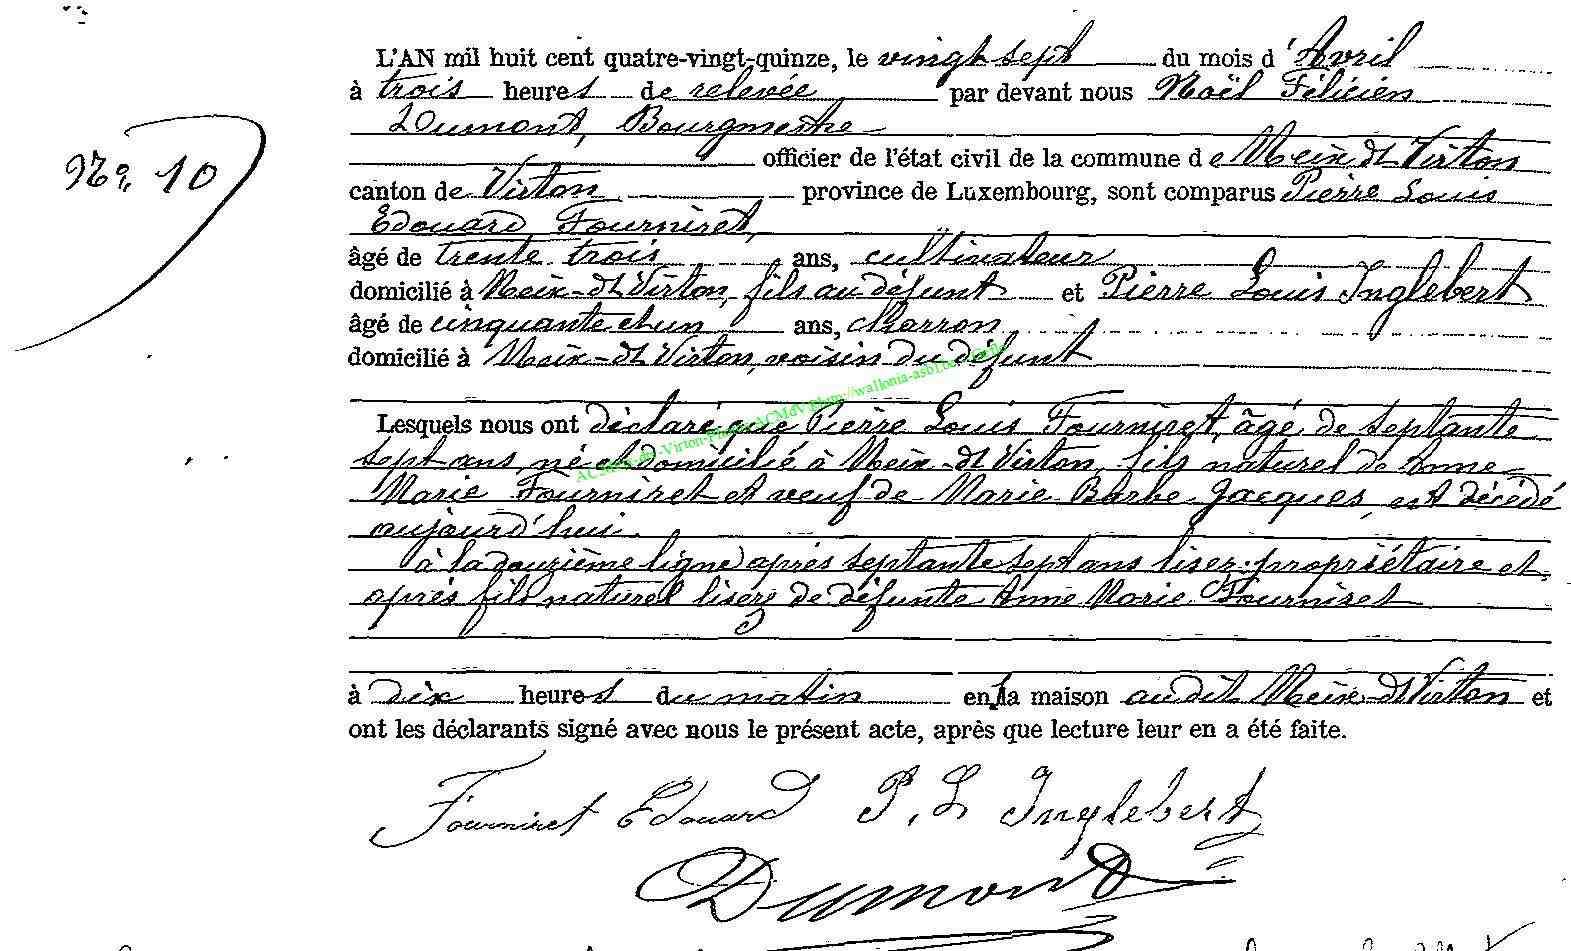 L'AN mil huit cent quatre-vingt-quinze, le vingt sept du mois d'Avril
à trois heures de relevée par devant nous Noël Félicien
Dumont, Bourgmestre
N° 10
officier de l'état civil de la commune de Meix-dt Virton
canton de Virton province de Luxembourg, sont comparus Pierre Louis
Edouard Fourniret,
âgé de trente trois ans, cultivateur
domicilié à Meix-dt Virton, fils au défunt et Pierre Louis Inglebert
âgé de cinquante et un ans, charron
domicilié à Meix-dt Virton, voisin du défunt
Lesquels nous ont déclaré que Pierre Louis Fourniret, âgé de septante
sept ans, né et domicilié à Meix-dt Virton, fils naturel de Anne
Marie Fourniret et veuf de Marie Barbe Jacques, est décédé
aujourd'hui.
à la douzième ligne après septante sept ans lisez: propriétaire et
après fils naturel lisez de défunte Anne Marie Fourniret
à dix heures du matin en la maison audit Meix-dt Virton et
ont les déclarants signé avec nous le présent acte, après que lecture leur en a été faite.
Fourniret Edouard P. L Inglebert
Dumont